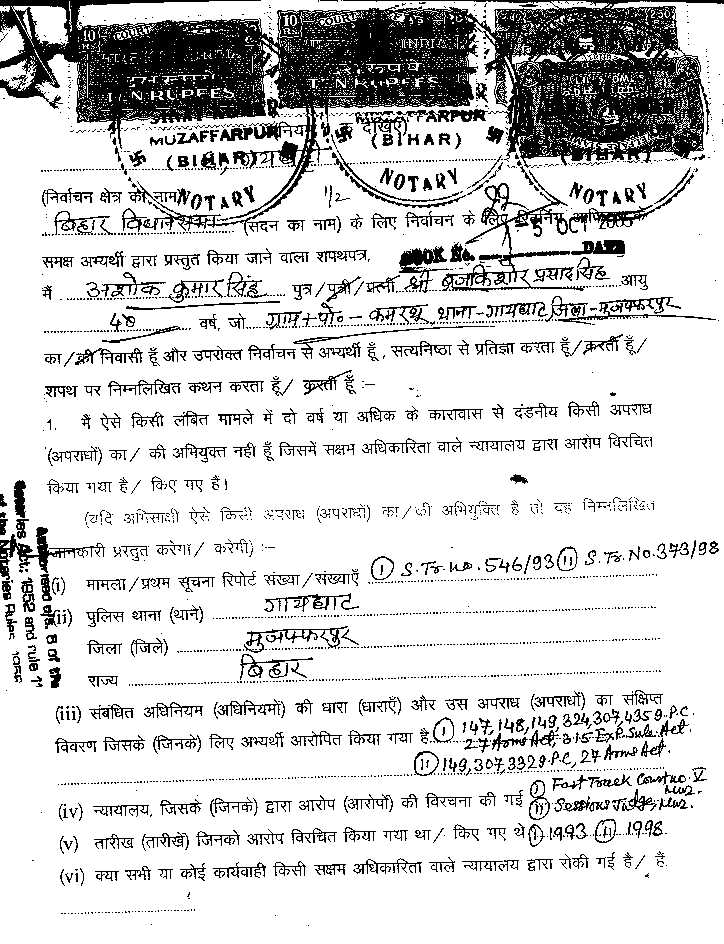 10 COURT 10
INDIA
TEN RUPEES TEN RUPEES
MUZAFFARPUR MUZAFFARPUR
(BIHAR) (BIHAR) (BIHAR)
NOTARY NOTARY NOTARY
(निर्वाचन क्षेत्र का नाम) 1/2
बिहार विधानसभा (सदन का नाम) के लिए निर्वाचन के लिए
5 OCT 2005
समक्ष अभ्यर्थी द्वारा प्रस्तुत किया जाने वाला शपथपत्र, BOOK No. DATE
मैं अशोक कुमार सिंह पुत्र/पुत्री/पत्नी श्री ब्रजकिशोर प्रसाद सिंह आयु
48 वर्ष, जो ग्राम+पो०- कमरथू, थाना-गायघाट, जिला-मुजफ्फरपुर
का/की निवासी हूँ और उपरोक्त निर्वाचन से अभ्यर्थी हूँ, सत्यनिष्ठा से प्रतिज्ञा करता हूँ/करती हूँ/
शपथ पर निम्नलिखित कथन करता हूँ/ करती हूँ :–
1. मैं ऐसे किसी लंबित मामले में दो वर्ष या अधिक के कारावास से दंडनीय किसी अपराध
(अपराधों) का/ की अभियुक्त नही हूँ जिसमें सक्षम अधिकारिता वाले न्यायालय द्वारा आरोप विरचित
किया गया है/ किए गए हैं।
(यदि अभिसाक्षी ऐसे किसी अपराध (अपराधों) का/की अभियुक्ति है तो वह निम्नलिखित
जानकारी प्रस्तुत करेगा/ करेगी) :–
(i) मामला/प्रथम सूचना रिपोर्ट संख्या/संख्याएँ (i) S.Tr.No.546/93 (ii) S.Tr.No.373/98
(ii) पुलिस थाना (थाने) गायघाट
जिला (जिले) मुजफ्फरपुर
राज्य बिहार
(iii) संबंधित अधिनियम (अधिनियमों) की धारा (धाराएँ) और उस अपराध (अपराधों) का संक्षिप्त
विवरण जिसके (जिनके) लिए अभ्यर्थी आरोपित किया गया है (i) 147,148,149,324,307,435 I.P.C.
27 Arms Act, 3/5 Exp. Sub. Act.
(ii) 149,307,332 I.P.C, 27 Arms Act.
(iv) न्यायालय, जिसके (जिनके) द्वारा आरोप (आरोपों) की विरचना की गई (i) Fast Track Court No. V
(ii) Sessions Judge,
(v) तारीख (तारीखें) जिनको आरोप विरचित किया गया था/ किए गए थे (i) 1993 (ii) 1998.
(vi) क्या सभी या कोई कार्यवाही किसी सक्षम अधिकारिता वाले न्यायालय द्वारा रोकी गई है/ हैं
Authorised u/s. 8 of the
Notaries Act; 1952 and rule 11
of the Notaries Rules 1956